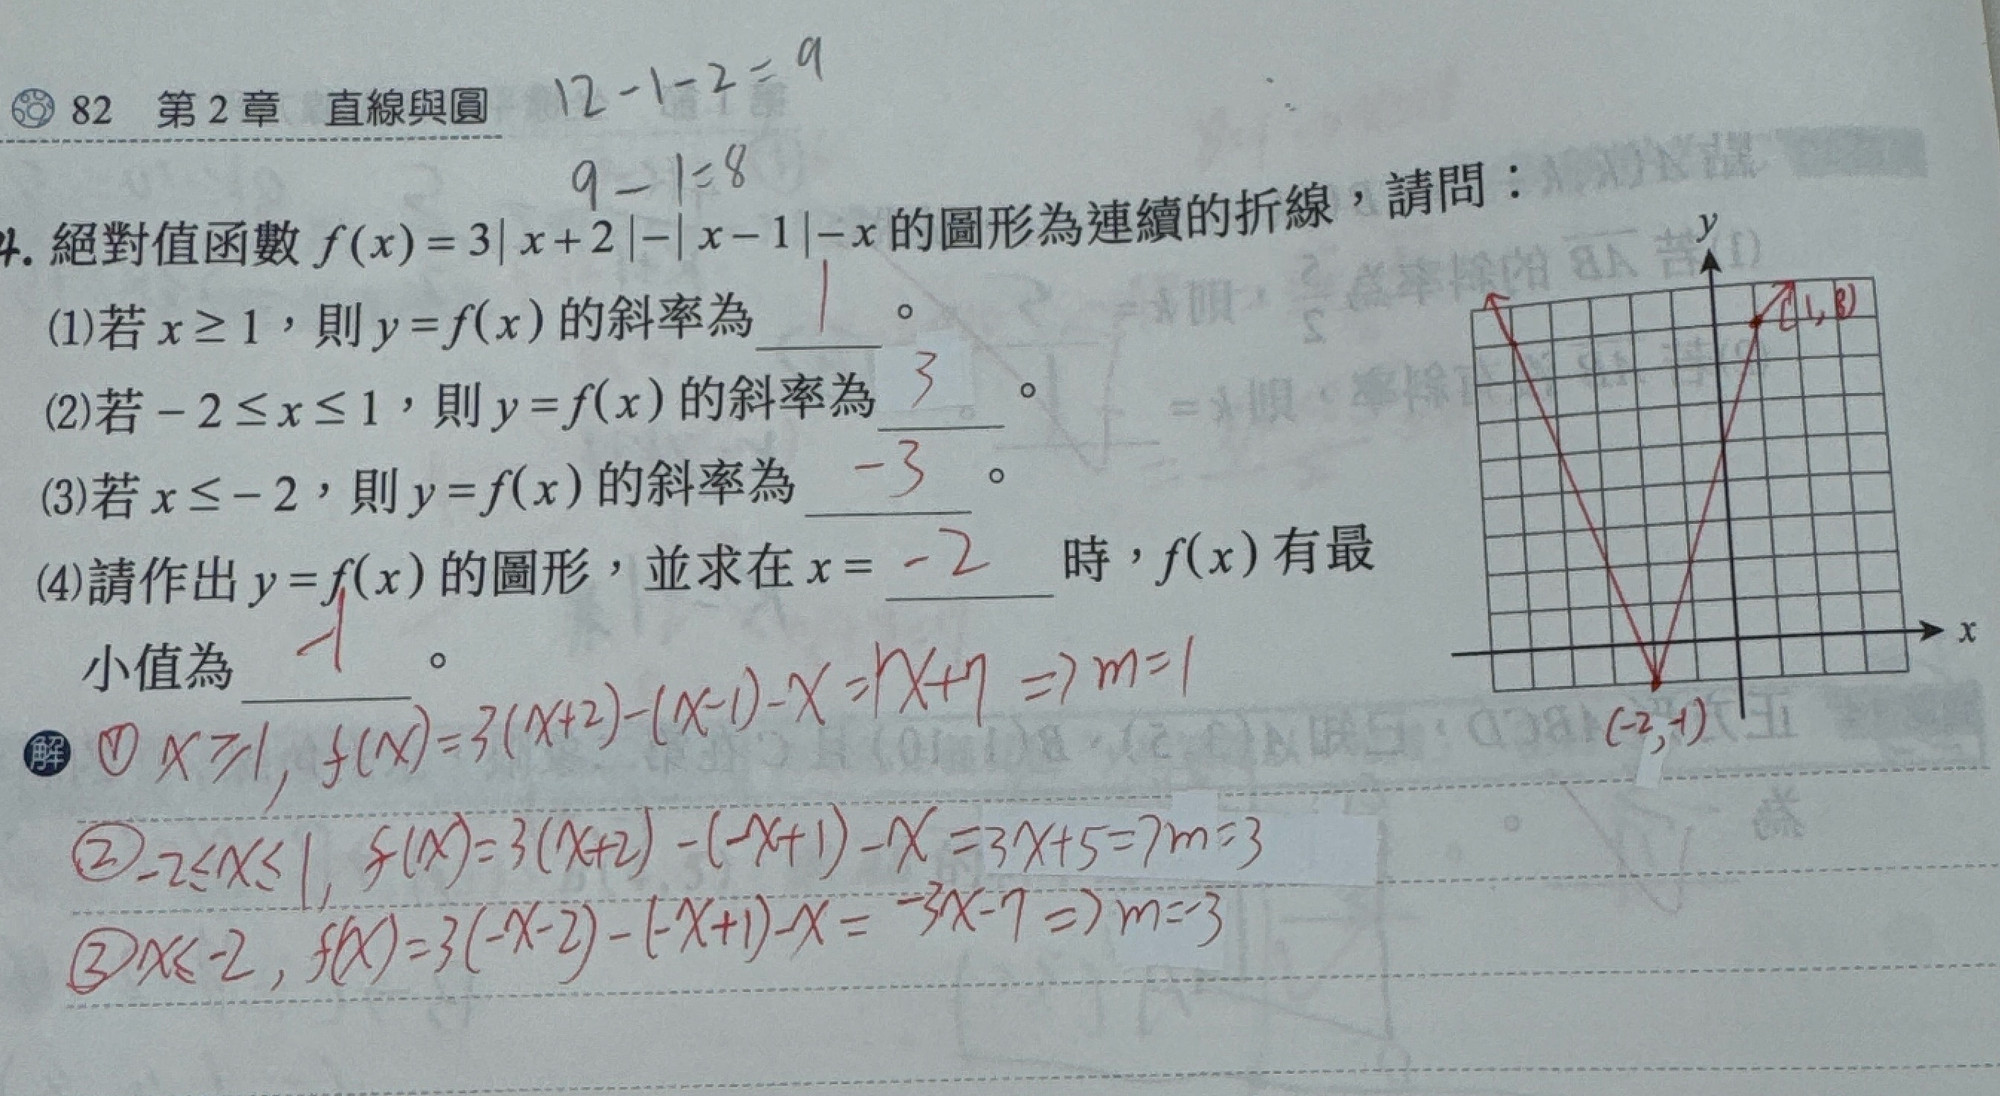 82 第2章 直線與圓 12-1-2=9
9-1=8
4. 絕對值函數 f(x)=3|x+2|-|x-1|-x 的圖形為連續的折線，請問：
(1)若 x≥1，則 y=f(x) 的斜率為 1 。
(2)若 -2≤x≤1，則 y=f(x) 的斜率為 3 。
(3)若 x≤-2，則 y=f(x) 的斜率為 -3 。
(4)請作出 y=f(x) 的圖形，並求在 x= -2 時，f(x) 有最
小值為 -1 。
y
(1,8)
x
(-2,-1)
解 ① x≥1, f(x)=3(x+2)-(x-1)-x=1x+7 => m=1
② -2≤x≤1, f(x)=3(x+2)-(-x+1)-x=3x+5=>m=3
③ x≤-2, f(x)=3(-x-2)-(-x+1)-x=-3x-7=>m=-3